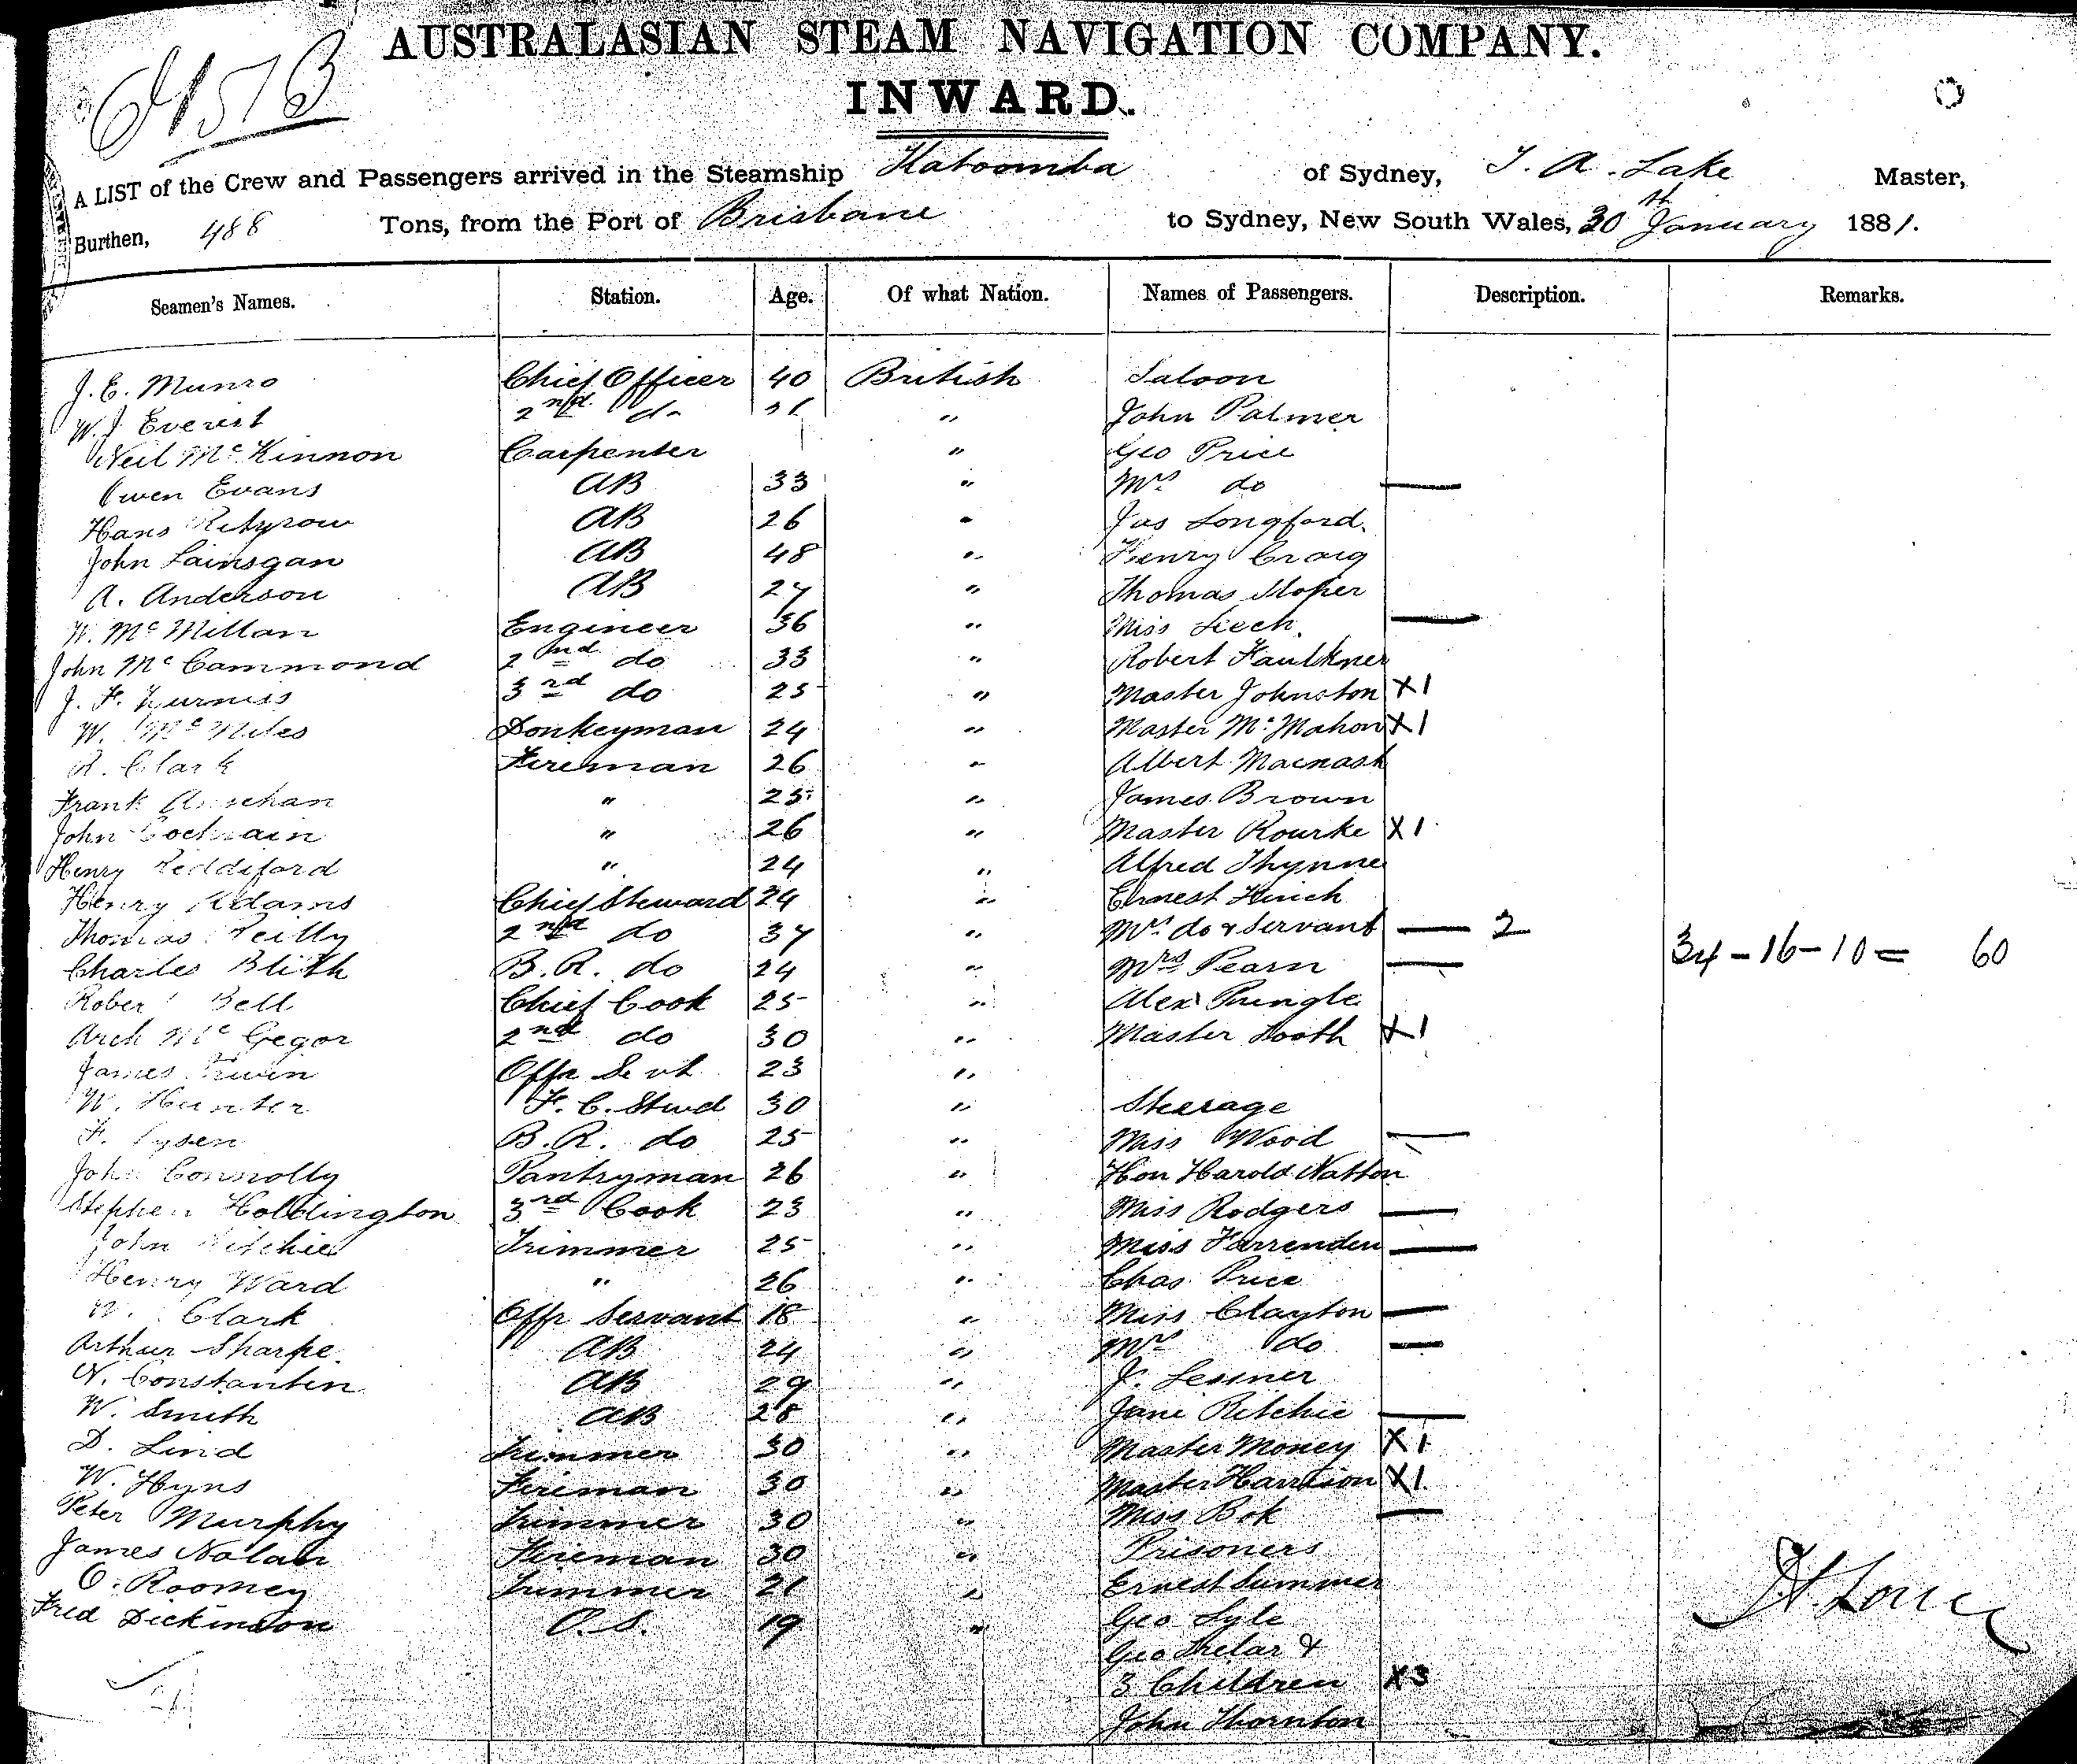 AUSTRALASIAN STEAM NAVIGATION COMPANY.
INWARD.
A LIST of the Crew and Passengers arrived in the Steamship Katoomba of Sydney, T. A. Lake Master,
Burthen, 488 Tons, from the Port of Brisbane to Sydney, New South Wales, 30th January 1881.
Seamen's Names. Station. Age. Of what Nation. Names of Passengers. Description. Remarks.
J. E. Munro Chief Officer 40 British Saloon
W. J. Everist 2nd do „ John Palmer
Neil McKinnon Carpenter „ Geo Price
Owen Evans AB 33 „ Mrs do —
Hans AB 26 „ Jas Longford.
John AB 48 „ Henry Craig
A. Anderson AB 27 „ Thomas Sloper
W. McMillan Engineer 36 „ Miss Leech. —
John McCammond 2nd do 33 „ Robert Faulkner
J. F. Furniss 3rd do 25 „ Master Johnston X1
W. Donkeyman 24 „ Master McMahon X1
R. Clark Fireman 26 „ Albert Macnash
Frank „ 25 „ James Brown
John Cochrain „ 26 „ Master Rourke X1
Henry Reddiford „ 24 „ Alfred Thynne
Henry Adams Chief Steward 24 „ Ernest Finch
Thomas Reilly 2nd do 37 „ Mrs do & Servant — 2
Charles Blith B.R. do 24 „ Mrs Pearn — 34-16-10= 60
Rober Bell Chief Cook 25 „ Alex Pringle
Arch McGegor 2nd do 30 „ Master Tooth X1
James Irwin Offr Servt 23 „
W. Hunter F. C. Stwd 30 „ Steerage
F. Tysen B.R. do 25 „ Miss Wood —
John Connolly Pantryman 26 „ Hon Harold Natton
Stephen Holdington 3rd Cook 23 „ Miss Rodgers —
John Ritchie Trimmer 25 „ Miss Farrenden —
Henry Ward „ 26 „ Chas Price
W. Clark Offr Servant 18 „ Miss Clayton —
Arthur Sharpe. AB 24 „ Mrs do —
N. Constantin AB 29 „ J. Lessner
W. Smith AB 28 „ Jane Ritchie —
D. Lind Trimmer 30 „ Master Money X1
W. Hyns Fireman 30 „ Master Harrison X1
Peter Murphy Trimmer 30 „ Miss Bok —
James Nolan Fireman 30 „ Prisoners
O. Roomey Trimmer 21 „ Ernest Summer
Fred Dickinson O.S. 19 „ Geo Lyle
Geo &
3 Children X3
John Thornton